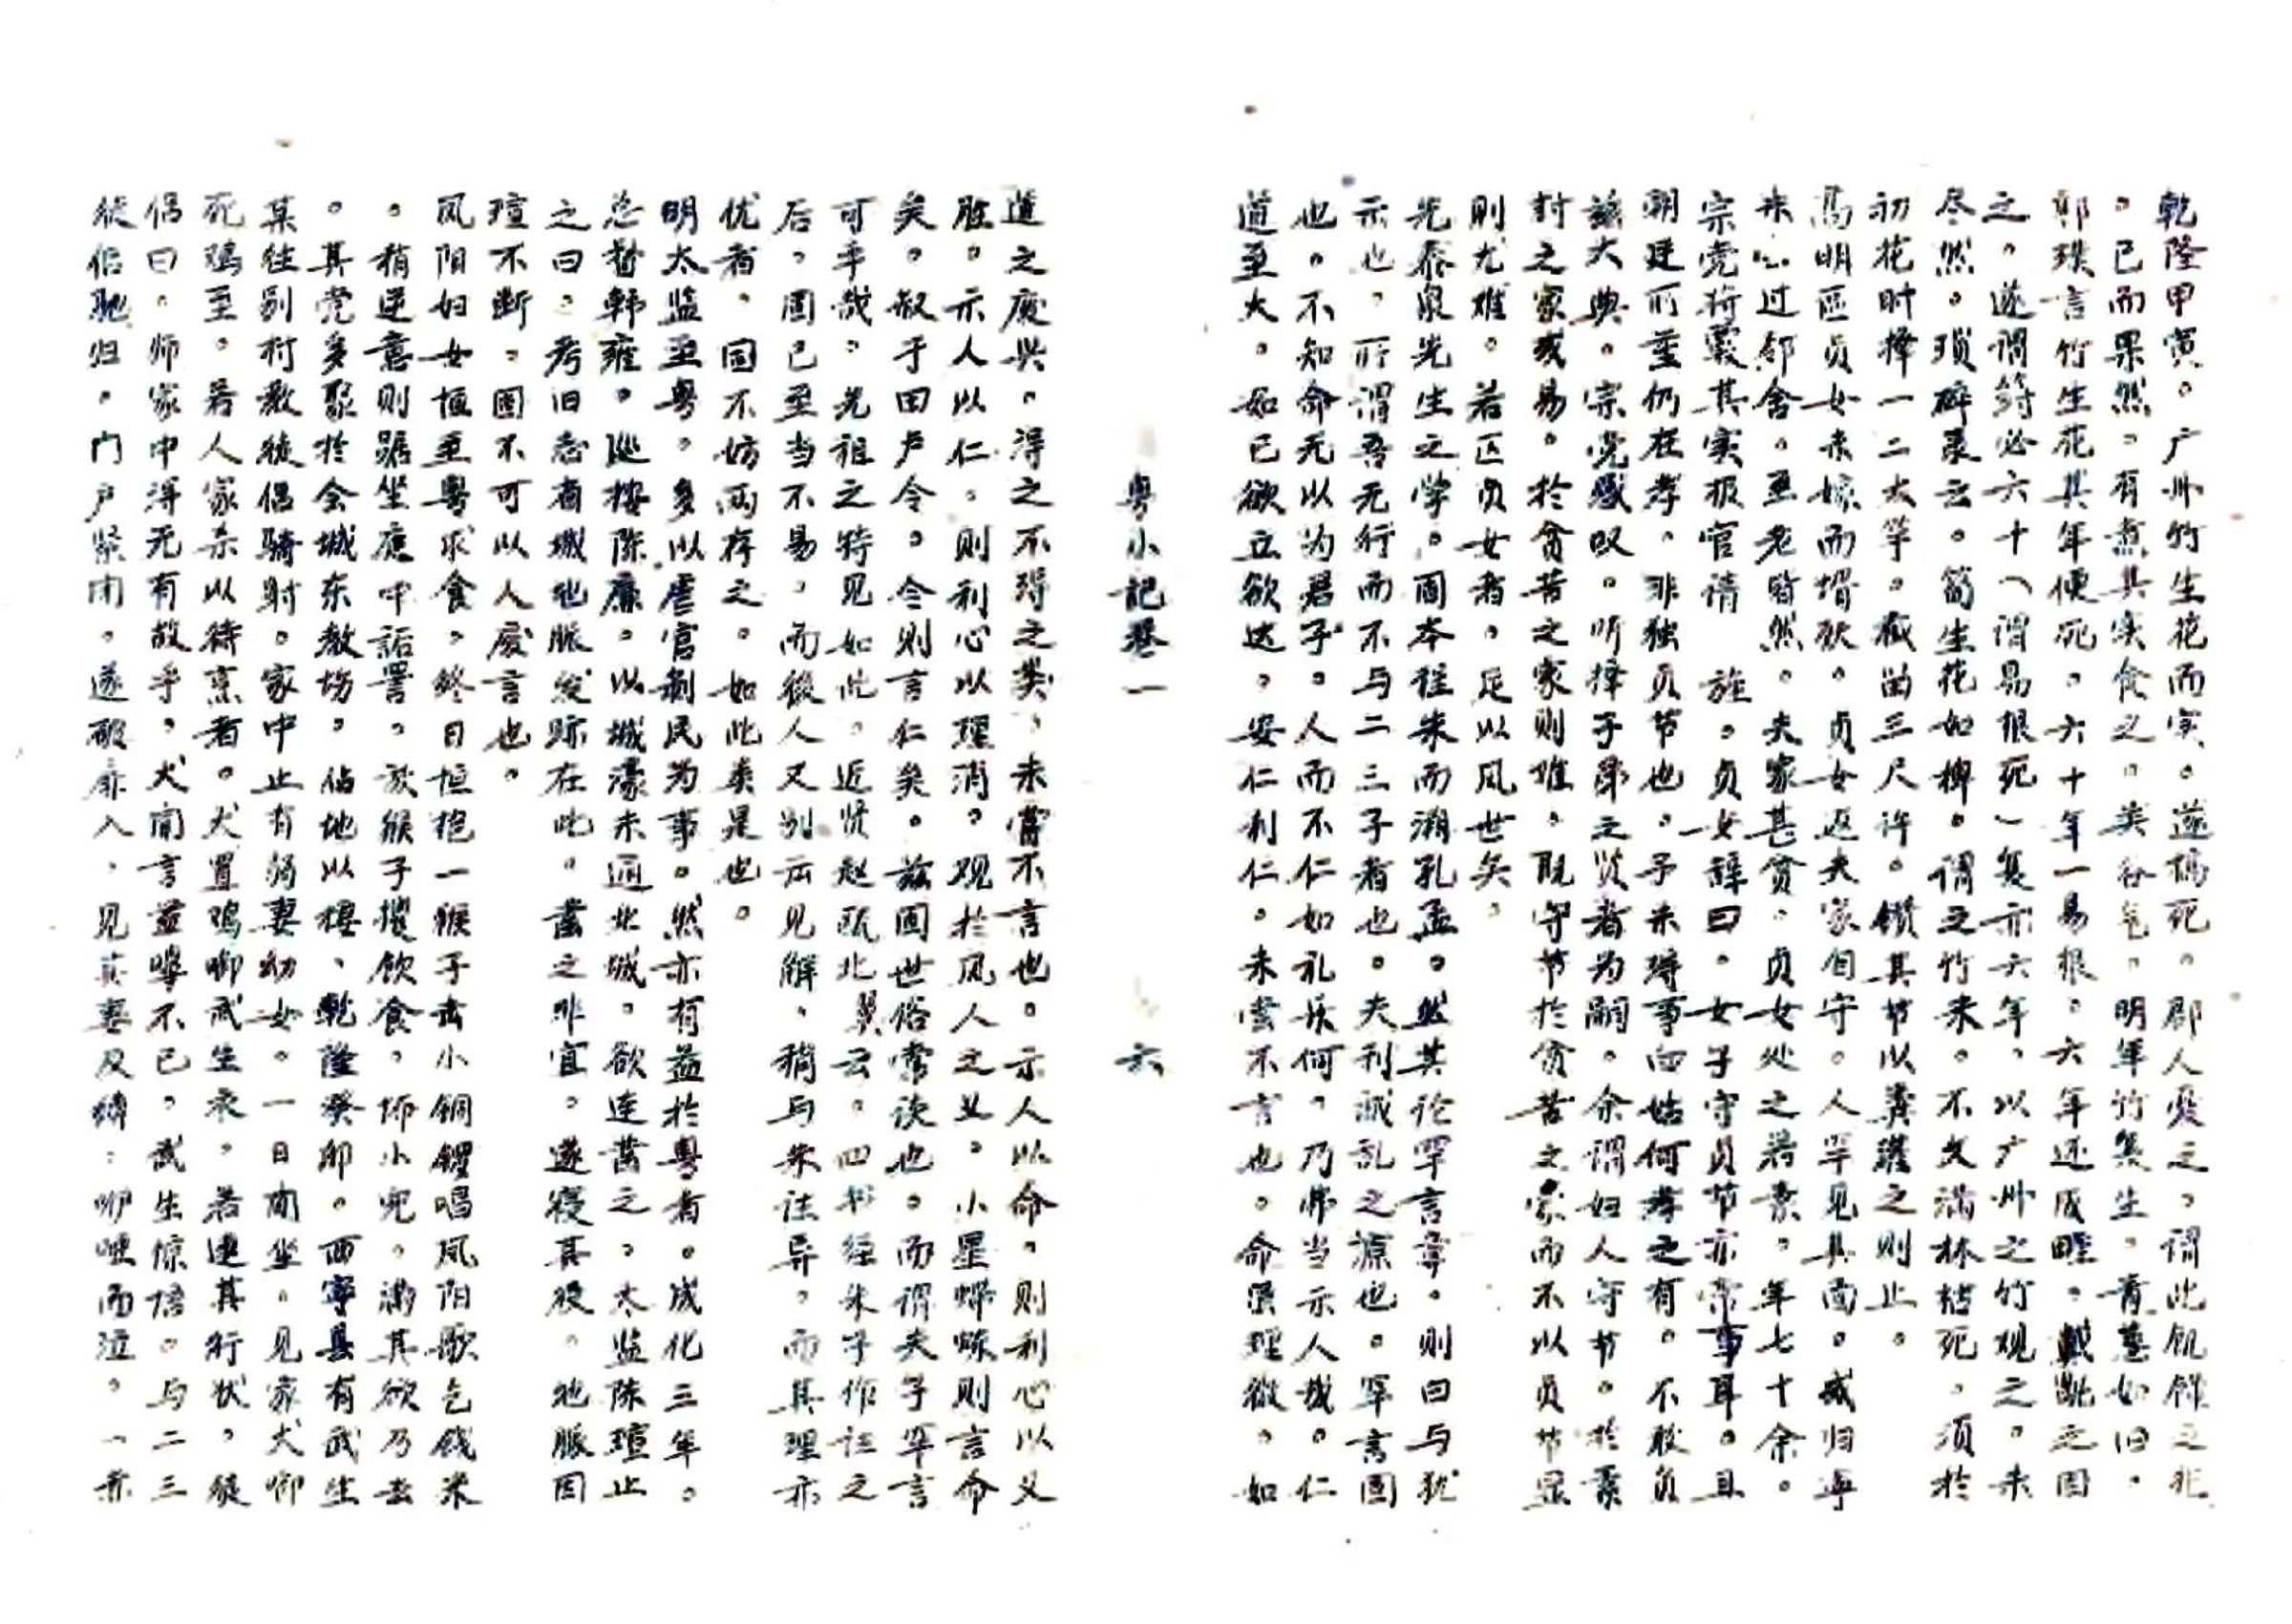 乾隆甲寅。广州竹生花而实。遂槁死。郡人忧之。谓此饥馑之兆
。已而果然。有煮其实食之。类谷气。明年竹复生。青葱如旧。
郭璞言竹生花其年便死。六十年一易根。六年还成畦。戴凯之因
之。遂谓箹必六十(谓易根死)复亦六年。以广州之竹观之。未
尽然。琐碎录云。筍生花如稗。谓之竹米。不久满林枯死。须于
初花时择一二大竿。截留三尺许。钻其节以粪灌之则止。
高明区贞女未嫁而壻殁。贞女返夫家自守。人罕见其面。戚归宁
未心过邻舍。至老皆然。夫家甚贫。贞女处之若素。年七十余。
宗党将覈其实报官请 旌。贞女辞曰。女子守贞节亦常事耳。且
朝廷所重仍在孝。非独贞节也。予未得事白姑何孝之有。不敢负
兹大典。宗党感叹。听择子弟之贤者为嗣。余谓妇人守节。于素
封之家或易。于贫苦之家则难。既守节于贫苦之家而不以贞节显
则尤难。若区贞女者。足以风世矣。
先泰泉先生之学。固本程朱而溯孔孟。然其论罕言章。则曰与犹
示也。所谓吾无行而不与二三子者也。夫利诚乱之源也。罕言固
也。不知命无以为君子。人而不仁如礼乐何。乃弗当示人哉。仁
道至大。如已欲立欲达。安仁利仁。未尝不言也。命虽理微。如
粤小记卷一 六
道之废兴。得之不得之类。未尝不言也。示人以命。则利心以义
胜。示人以仁。则利心以理消。观于风人之义。小星蝃蝀则言命
矣。叔于田卢令。令则言仁矣。兹固世俗常谈也。而谓夫子罕言
可乎哉。先祖之特见如此。近贤赵瓯北翼云。四书经朱子作注之
后。固已至当不易。而后人又别云见解。稍与朱注异。而其理亦
优者。固不妨两存之。如此类是也。
明太监至粤。多以虐官剥民为事。然亦有益于粤者。成化三年。
总督韩雍。巡按陈廉。以城濠未通北城。欲连凿之。太监陈瑄止
之曰。考旧志省城地脉发踪在此。凿之非宜。遂寝其役。地脉因
瑄不断。固不可以人废言也。
凤阳妇女恒至粤求食。终日恒抱一猴子击小铜锣唱凤阳歌乞钱米
。稍逆意则踞坐庭中詬詈。放猴子攫饮食。怖小儿。满其欲乃去
。其党多聚于会城东教场。佔地以栖、乾隆癸卯。西宁县有武生
某往别村教徒侣骑射。家中止有弱妻幼女。一日闲坐。见家犬啣
死鸡至。若人家杀以待烹者。犬置鸡啣武生衣。若速其行状。徒
侣曰。师家中得无有故乎。犬闻言益嗥不已。武生惊悟。与二三
徒侣驰归。门户紧闭。遂破扉入。见其妻及婢:咿嘤而泣。一赤